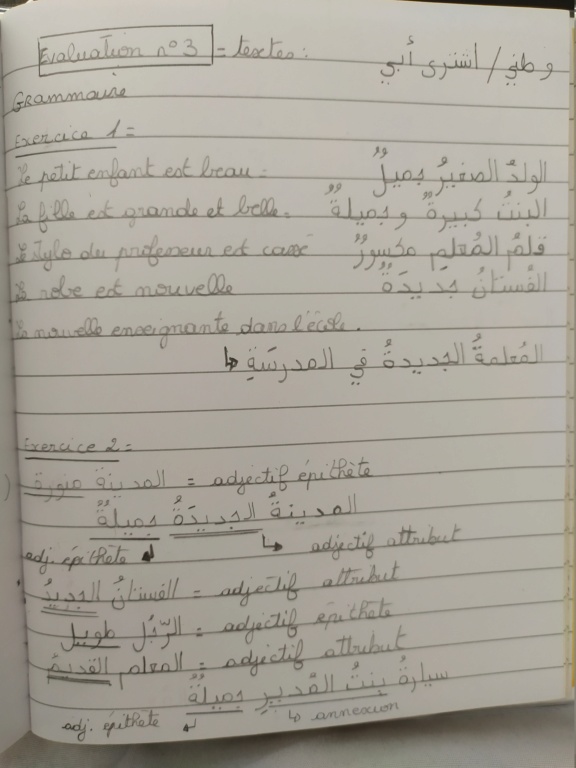 Evaluation n°3 = textes : وطني / اشترى أبي
Grammaire
Exercice 1 =
Le petit enfant est beau = الولدُ الصغيرُ جميلٌ
La fille est grande et belle = البنتُ كبيرةٌ و جميلةٌ
Le stylo du professeur est cassé قلمُ المُعلمِ مكسورٌ
La robe est nouvelle الفُستانُ جَديدَةٌ
La nouvelle enseignante dans l'école.
↳ المُعلمةُ الجديدةُ في المدرسَةِ
Exercice 2 =
المدينة منورة = adjectif épithète
المدينةُ الجديدَةُ جميلةٌ
adj. épithète ↲ ↳ adjectif attribut
الفستانُ الجديدُ = adjectif attribut
الرّجُل طويل = adjectif épithète
المعلم القديمُ = adjectif attribut
سيارةُ بنتُ المُديرِ جميلةٌ
adj. épithète ↲ ↳ annexion